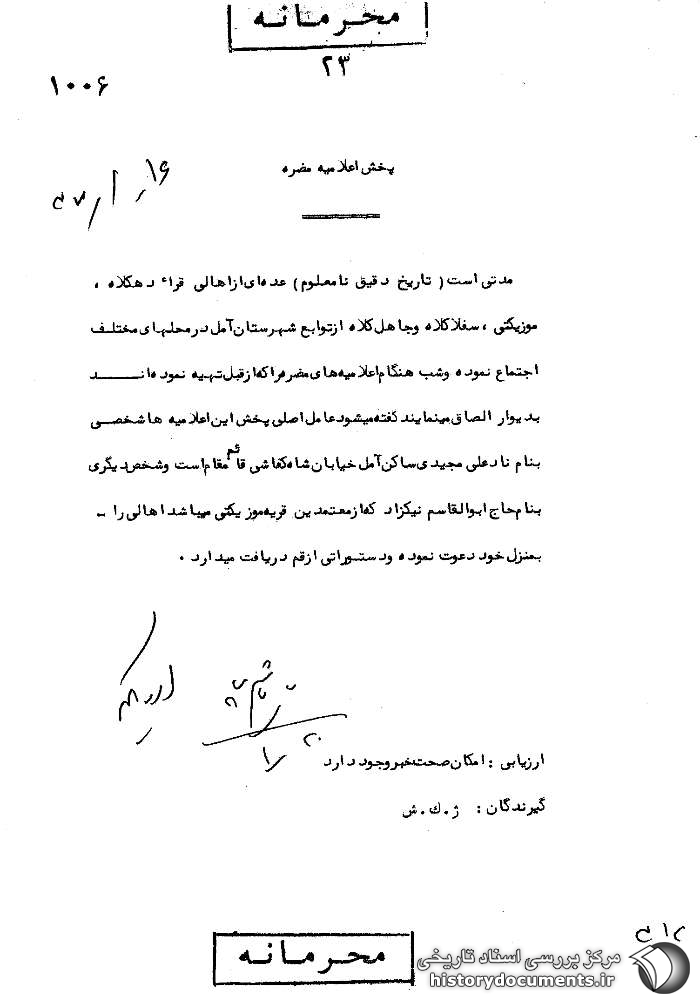 محرمانه
۲۳
۱۰۰۶
پخش اعلامیه مضره
مدتی است ( تاریخ دقیق نامعلوم ) عده‌ای از اهالی قراء دهکلاه ،
موزیکتی ، سفلاکلاه وجاهل کلاه ازتوابع شهرستان آمل درمحلهای مختلف
اجتماع نموده وشب هنگام اعلامیه‌های مضره راکه ازقبل تهیه نموده‌انـــد
بدیوار الصاق مینمایند گفته میشود عامل اصلی پخش این اعلامیه ها شخصـی
بنام نادعلی مجیدی ساکن آمل خیابان شاه کفاشی قائم مقام است وشخص دیگری
بنام حاج ابوالقاسم نیکزاد که از معتمدین قریه موزیکتی میباشد اهالی را -
بمنزل خود دعوت نموده ودستوراتی ازقم دریافت میدارد .
ارزیابی : امکان صحت خبر وجود دارد
گیرندگان : ژ.ك.ش
محرمانه
مرکز بررسی اسناد تاریخی
historydocuments.ir